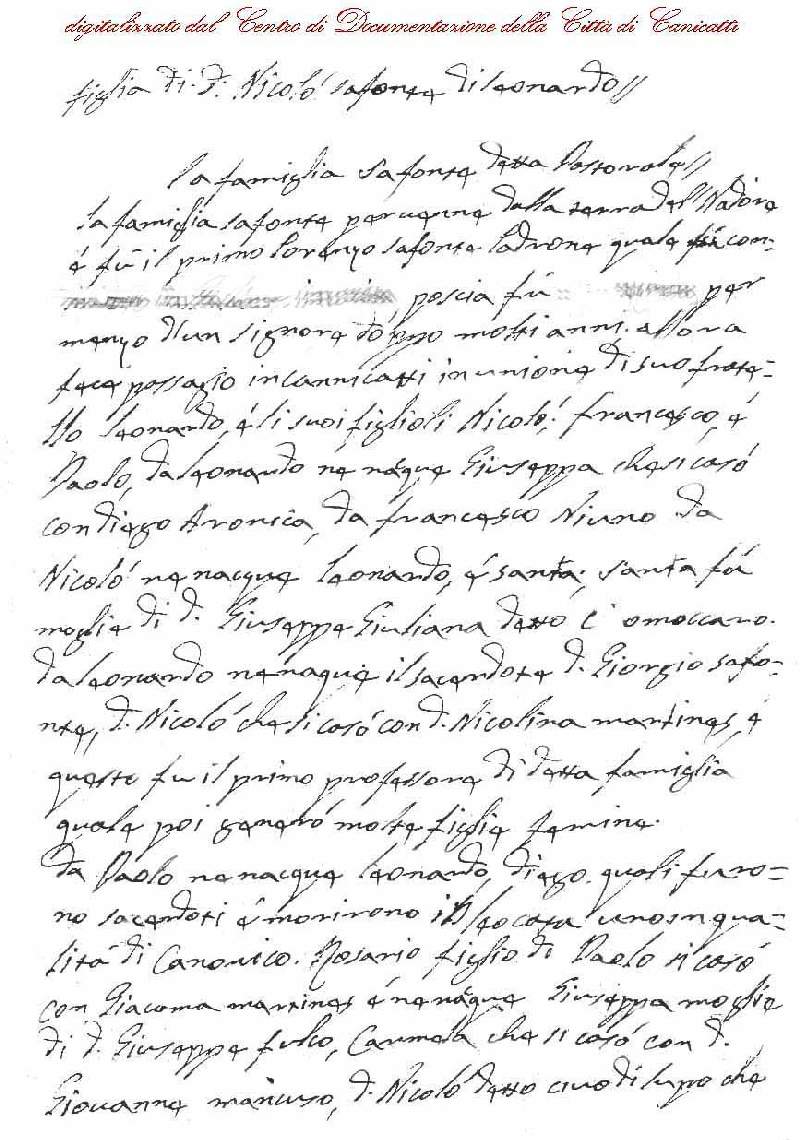 digitalizzato dal Centro di Documentazione della Città di Canicattì
figlia di d. Nicolò safonte di leonardo//
la famiglia safonte detta Pastorale//
la famiglia safonte pervenne dalla terra del Nadore
é fù il primo lorenzo safonte ladrone quale fù con=
poscia fù per
menzo d'un signore doppo molti anni. allora
fece passagio in cannicatti in unione di suo frate=
llo leonardo, é li suoi figlioli Nicolò, francesco, é
Paolo, da leonardo ne náque Giuseppa che si casó
con diego Aronica, da francesco Niuno da
Nicoló ne nacque leonardo, é santa; santa fú
moglie di d. Giuseppe Giuliana detto l'omoccaro.
da leonardo ne naque il sacerdote d. Giorgio safo=
nte, d. Nicoló che si casó con d. Nicolina martines, é
questo fu il primo professore di detta famiglia
quale poi generó molte figlie femine.
da Paolo ne nacque leonardo, diego. quali furo=
no sacerdoti é morirono in leocata uno in qua=
litá di Canonico. Rosario figlio di Paolo si casó
con Giacoma martines é ne náque Giuseppa moglie
di d. Giuseppe fulco, Carmela che si casó con d.
Giovanne mancuso, d. Nicoló detto civo di lupo che